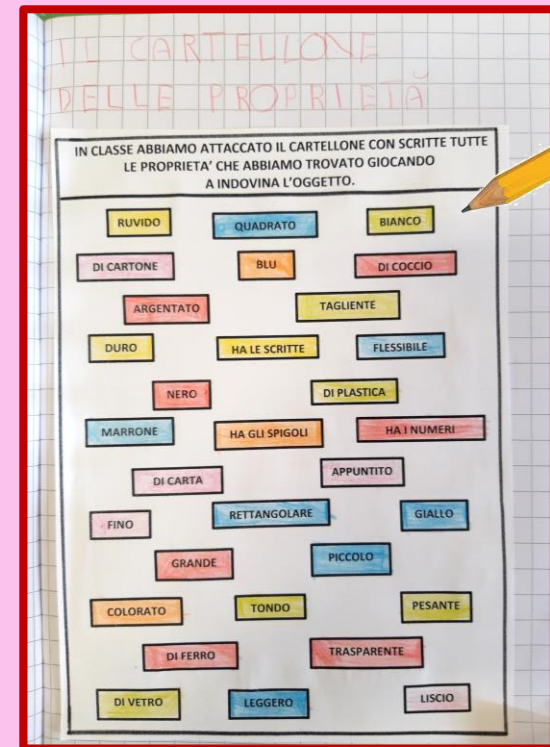 IL CARTELLONE
DELLE PROPRIETÀ
IN CLASSE ABBIAMO ATTACCATO IL CARTELLONE CON SCRITTE TUTTE
LE PROPRIETA' CHE ABBIAMO TROVATO GIOCANDO
A INDOVINA L'OGGETTO.
RUVIDO QUADRATO BIANCO
DI CARTONE BLU DI COCCIO
ARGENTATO TAGLIENTE
DURO HA LE SCRITTE FLESSIBILE
NERO DI PLASTICA
MARRONE HA GLI SPIGOLI HA I NUMERI
DI CARTA APPUNTITO
FINO RETTANGOLARE GIALLO
GRANDE PICCOLO
COLORATO TONDO PESANTE
DI FERRO TRASPARENTE
DI VETRO LEGGERO LISCIO